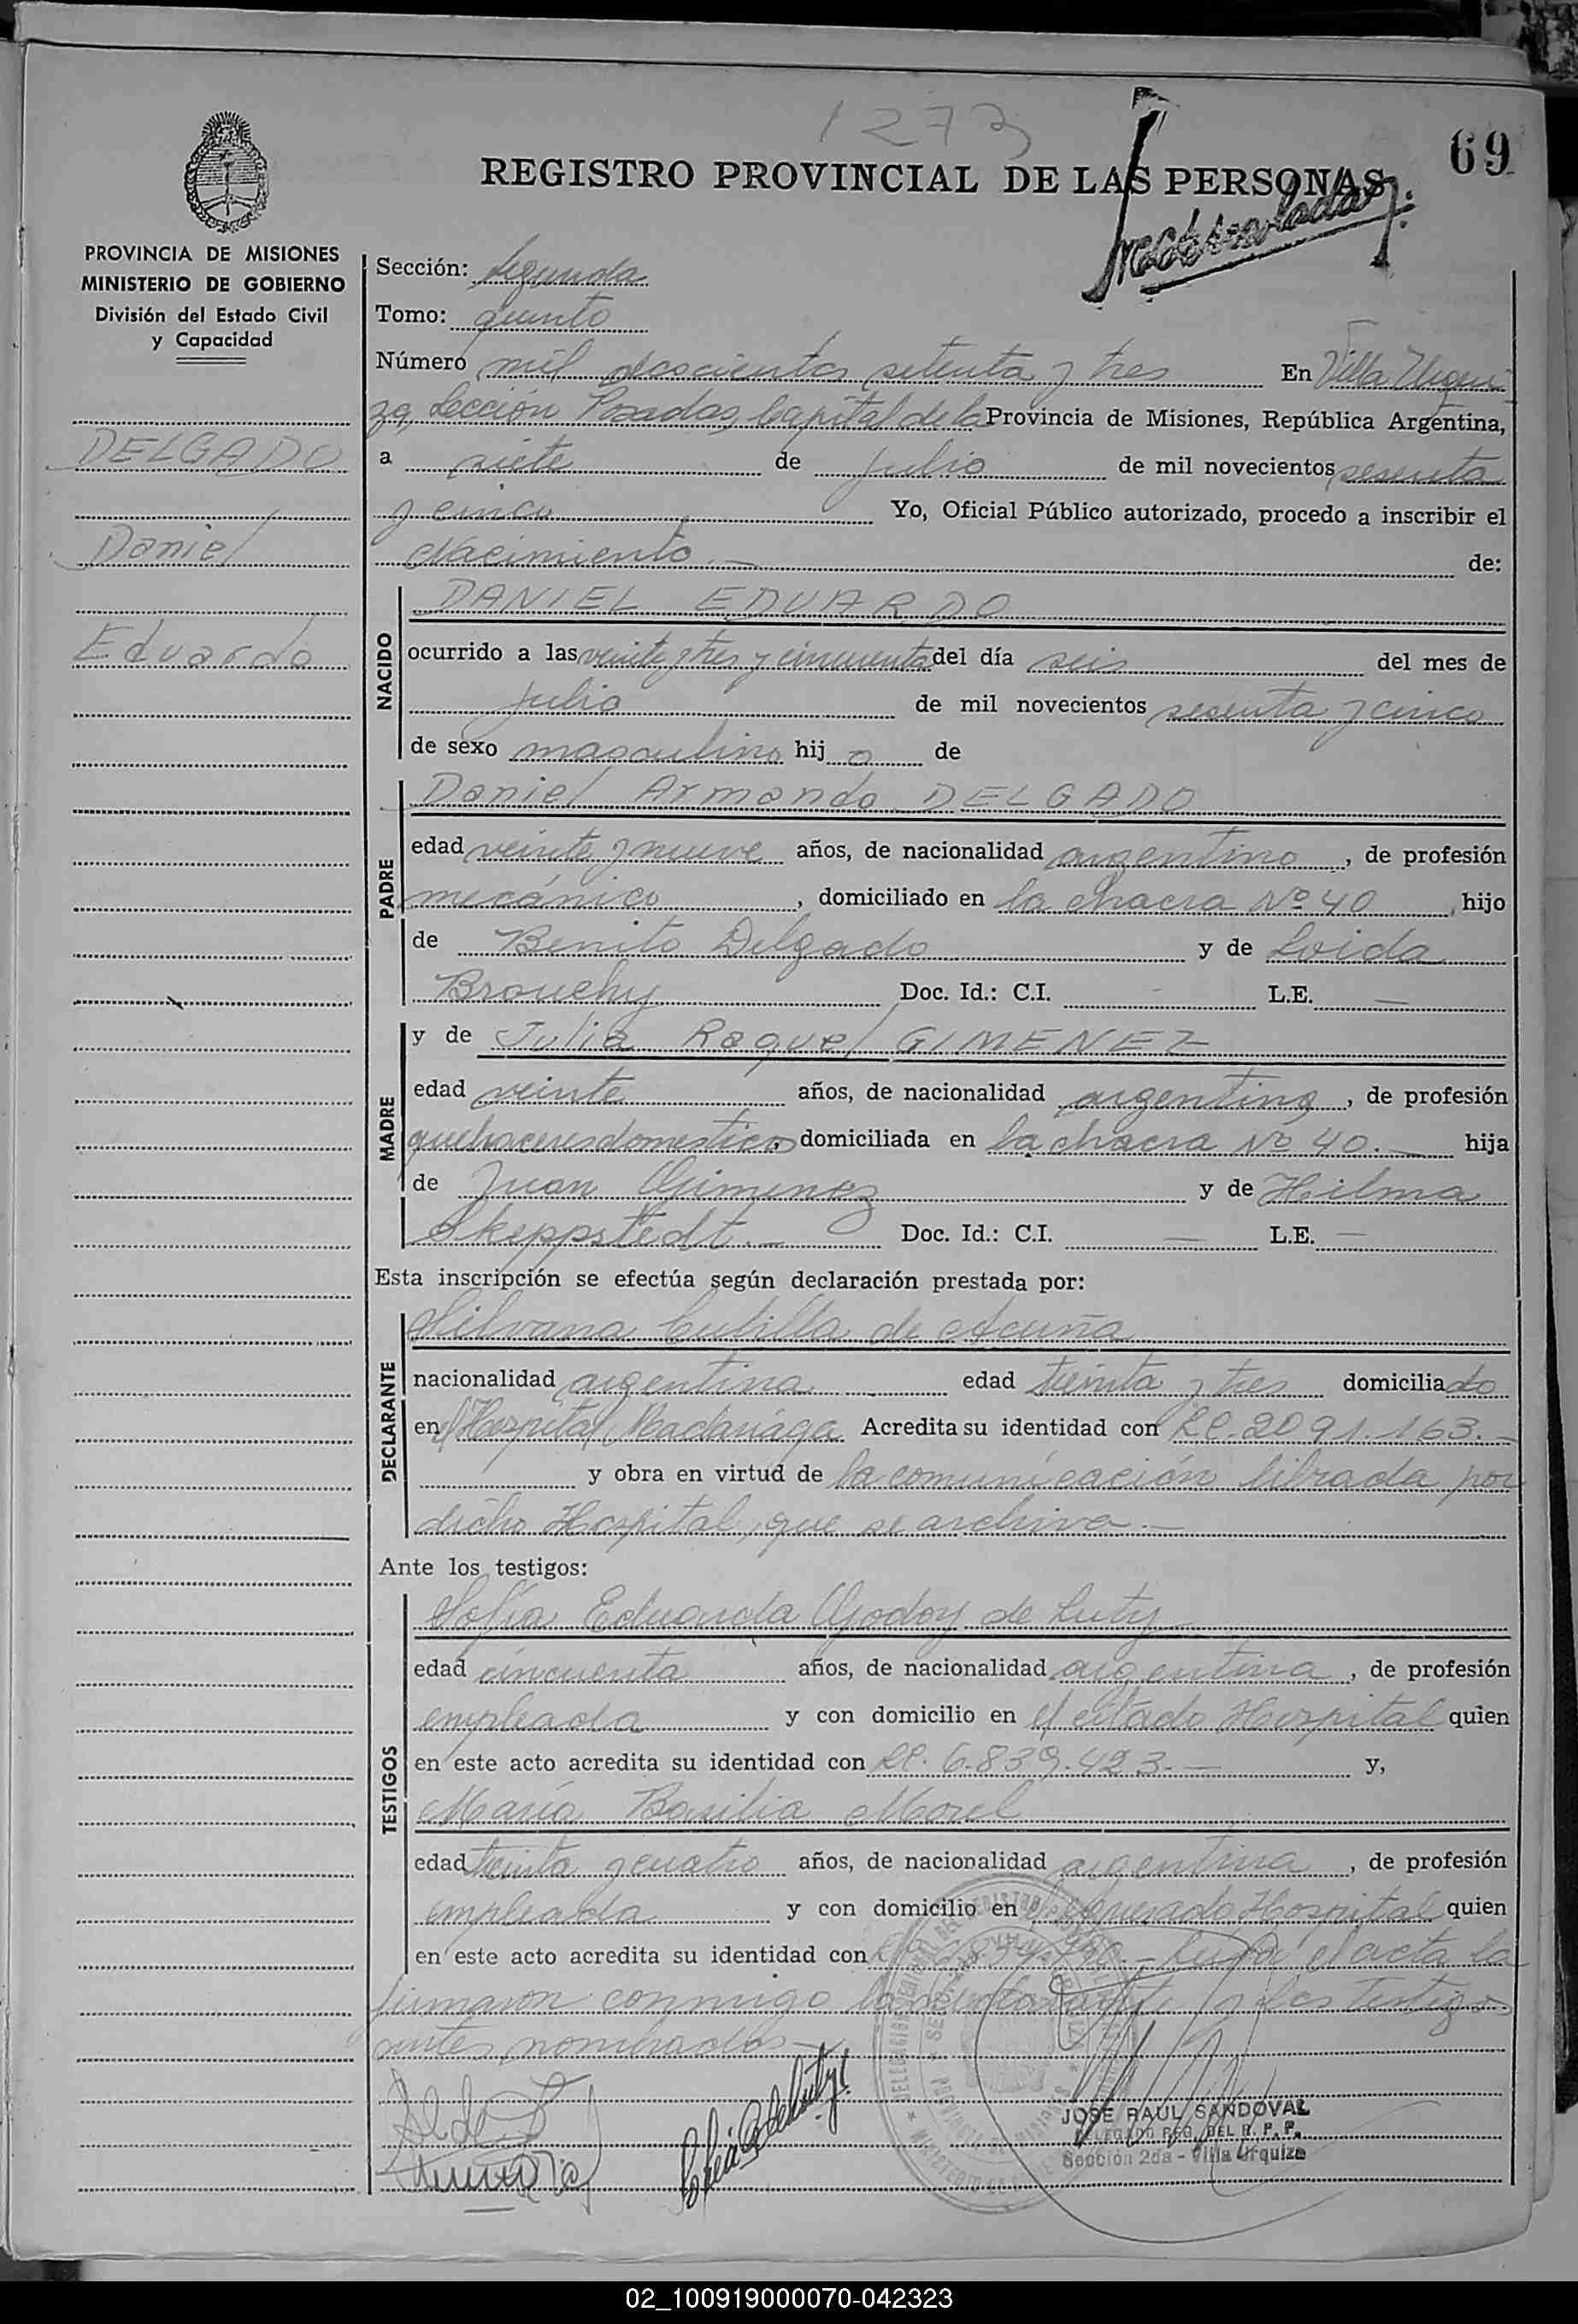 1273
69
REGISTRO PROVINCIAL DE LAS PERSONAS
PROVINCIA DE MISIONES
MINISTERIO DE GOBIERNO
División del Estado Civil
y Capacidad
DELGADO
Daniel
Eduardo
Sección: Segunda
Tomo: quinto
Número mil doscientos setenta y tres En Villa Urqui
za, Sección Posadas, Capital de la Provincia de Misiones, República Argentina,
a siete de julio de mil novecientos sesenta
y cinco Yo, Oficial Público autorizado, procedo a inscribir el
Nacimiento.— de:
NACIDO
DANIEL EDUARDO
ocurrido a las veinte y tres y cincuenta del día seis del mes de
julio de mil novecientos sesenta y cinco
de sexo masculino hijo de
PADRE
Daniel Armando DELGADO
edad veinte y nueve años, de nacionalidad argentino, de profesión
mecánico, domiciliado en la chacra Nº 40, hijo
de Benito Delgado y de Loida
Brouchy Doc. Id.: C.I. - L.E. —
MADRE
y de Julia Raquel GIMENEZ
edad veinte años, de nacionalidad argentina, de profesión
quehaceres domesticos, domiciliada en la chacra Nº 40.— hija
de Juan Gimenez y de Hilma
Skeppstedt.— Doc. Id.: C.I. — L.E. —
Esta inscripción se efectúa según declaración prestada por:
DECLARANTE
Silvana Cubilla de Acuña
nacionalidad argentina edad treinta y tres domiciliado
en el Hospital Madariaga Acredita su identidad con LC. 2091.163.—
y obra en virtud de la comunicación librada por
dicho Hospital, que se archiva.—
Ante los testigos:
TESTIGOS
Sofía Eduarda Godoy de Luty
edad cincuenta años, de nacionalidad argentina, de profesión
empleada y con domicilio en el citado Hospital quien
en este acto acredita su identidad con LC. 6.839.423.— y,
María Basilia Morel
edad treinta y cuatro años, de nacionalidad argentina, de profesión
empleada y con domicilio en el Hospital quien
en este acto acredita su identidad con el acta la
firmaron conmigo y los testigos
antes nombrados.—
JOSE RAUL SANDOVAL
DELEGADO REG. DEL R. P. P.
Sección 2da - Villa Urquiza
02_100919000070-042323